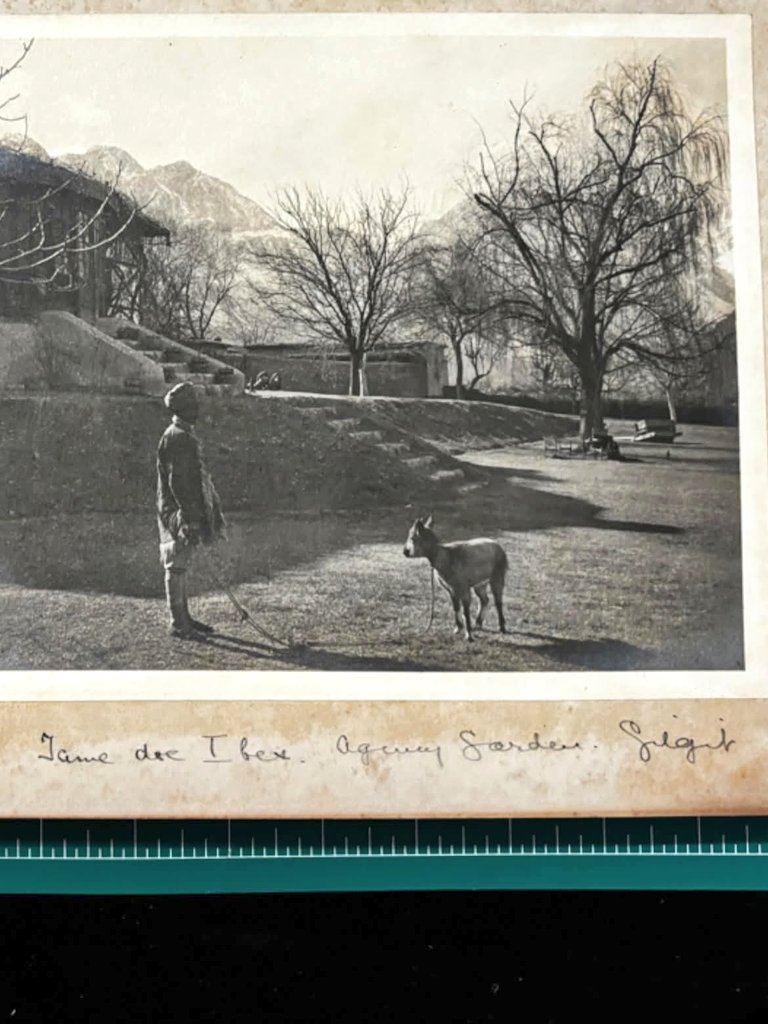 Tame doe Ibex. Agency Garden. Gilgit